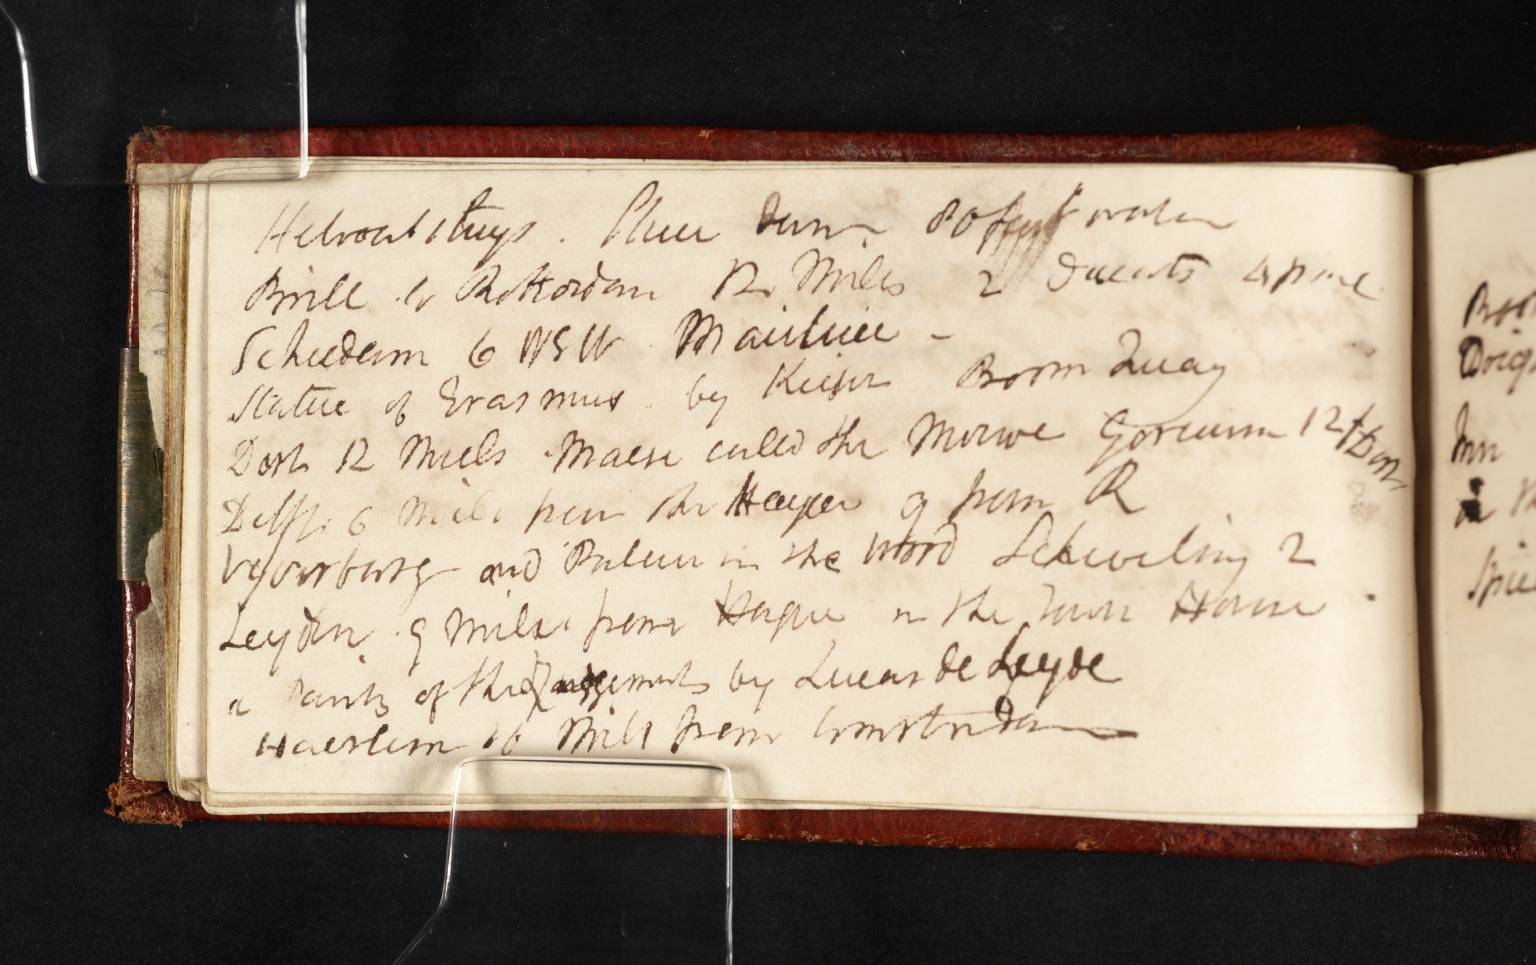 Helvoetsluys. Sluce down 80 feet water
Brill to Rotterdam 12 Miles 2 Ducats a piece
Schiedam 6 WSW Mailuice -
Statue of Erasmus by Keiser Boom Quay
Dort 12 Miles Maese called the Merwe Gorcum 12 f Dor
Delft 6 Miles from the Hague 9 from R
Voorburg and Palace in the Wood Scheveling 2
Leyden 9 Miles from Hague in the Town House
a Paintg of the Judgements by Lucas de Leyde
Haerlem 16 Mils from Amsterdam
Boo
in
Inn
Spie